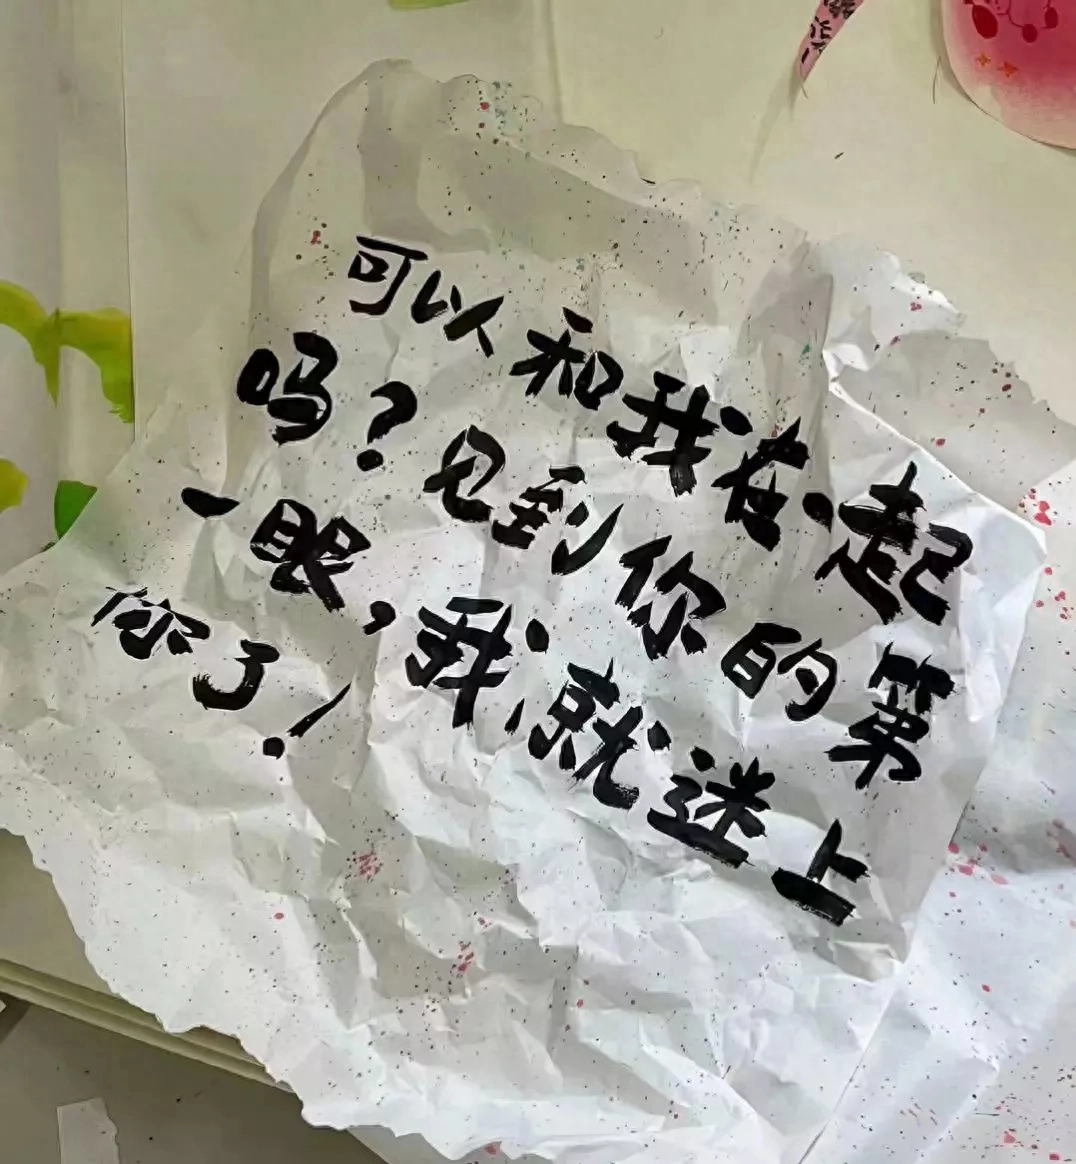 可以和我在一起
吗？见到你的第
一眼，我就迷上
你了！